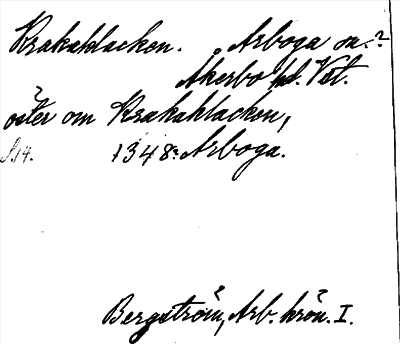 Krakahlacken. Arboga sn.?
Åkerbo hd. Vstm.
öster om Krakahlacken,
S. 14. 1348: Arboga.
Bergström, Arb. krön. I.